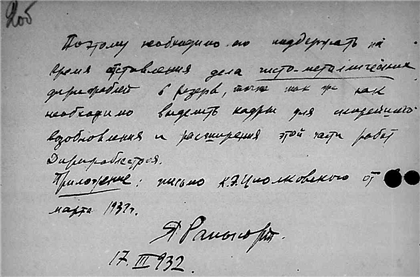 206
Поэтому необходимо поддержать на
время отставления дела чисто-металлические
дирижабли в резерв, так же как
необходимо выделить кадры для скорейшего
возобновления и расширения этой части работ
Дирижаблестроя.
Приложение: письмо К.Э.Циолковского от
марта 1932г.
Я Рапопорт.
17 III 932.